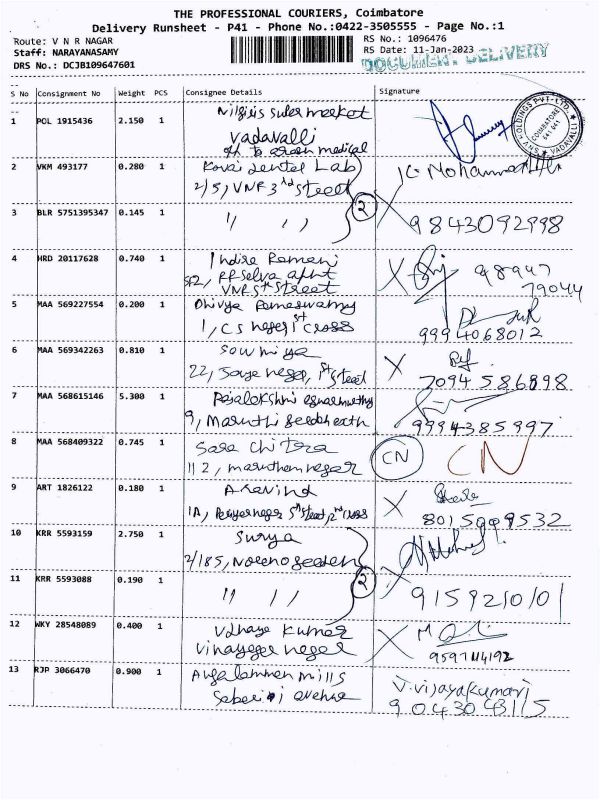 THE PROFESSIONAL COURIERS, Coimbatore
Delivery Runsheet - P41 - Phone No.:0422-3505555 - Page No.:1
Route: V N R NAGAR
RS No.: 1096476
Staff: NARAYANASAMY
RS Date: 11-Jan-2023
DRS No.: DCJB109647601
DOCUMENT DELIVERY
S No Consignment No Weight PCS Consignee Details Signature
1 POL 1915436 2.150 1 Nilgiris super market
Vadavalli
medical
HOLDINGS PVT-LTD.
COIMBATORE
641 041
VADAVALLI
2 VKM 493177 0.280 1 Kovai dental Lab
2/5, VNR 3rd street
K. Mohan
3 BLR 5751395347 0.145 1 " " 2
9843092998
4 HRD 20117628 0.740 1 Indira Ramani
VNR 5th street
98947
79044
5 MAA 569227554 0.200 1 Dhivya Rameswamy
1, CS nager 1st cross
9994068012
6 MAA 569342263 0.810 1 Sowmiya
22, Jaya nager, 1st street
7094 586898
7 MAA 568615146 5.300 1 Rajalakshmi
9, Maruthi
9994385997
8 MAA 568409322 0.745 1 Sara Chitra
112, maruthamnagar
CN CN
9 ART 1826122 0.180 1 Aravind
1A, Periyarnager 5th street, 2nd cross
8015999532
10 KRR 5593159 2.750 1 Surya
2/185,
11 KRR 5593088 0.190 1 " " 2
9159210101
12 WKY 28548089 0.400 1 Udhaya Kumar
Vinayagar nagar
9597114192
13 RJP 3066470 0.900 1 Angalamman mills
avenue
V. Vijayakumari
9043043115